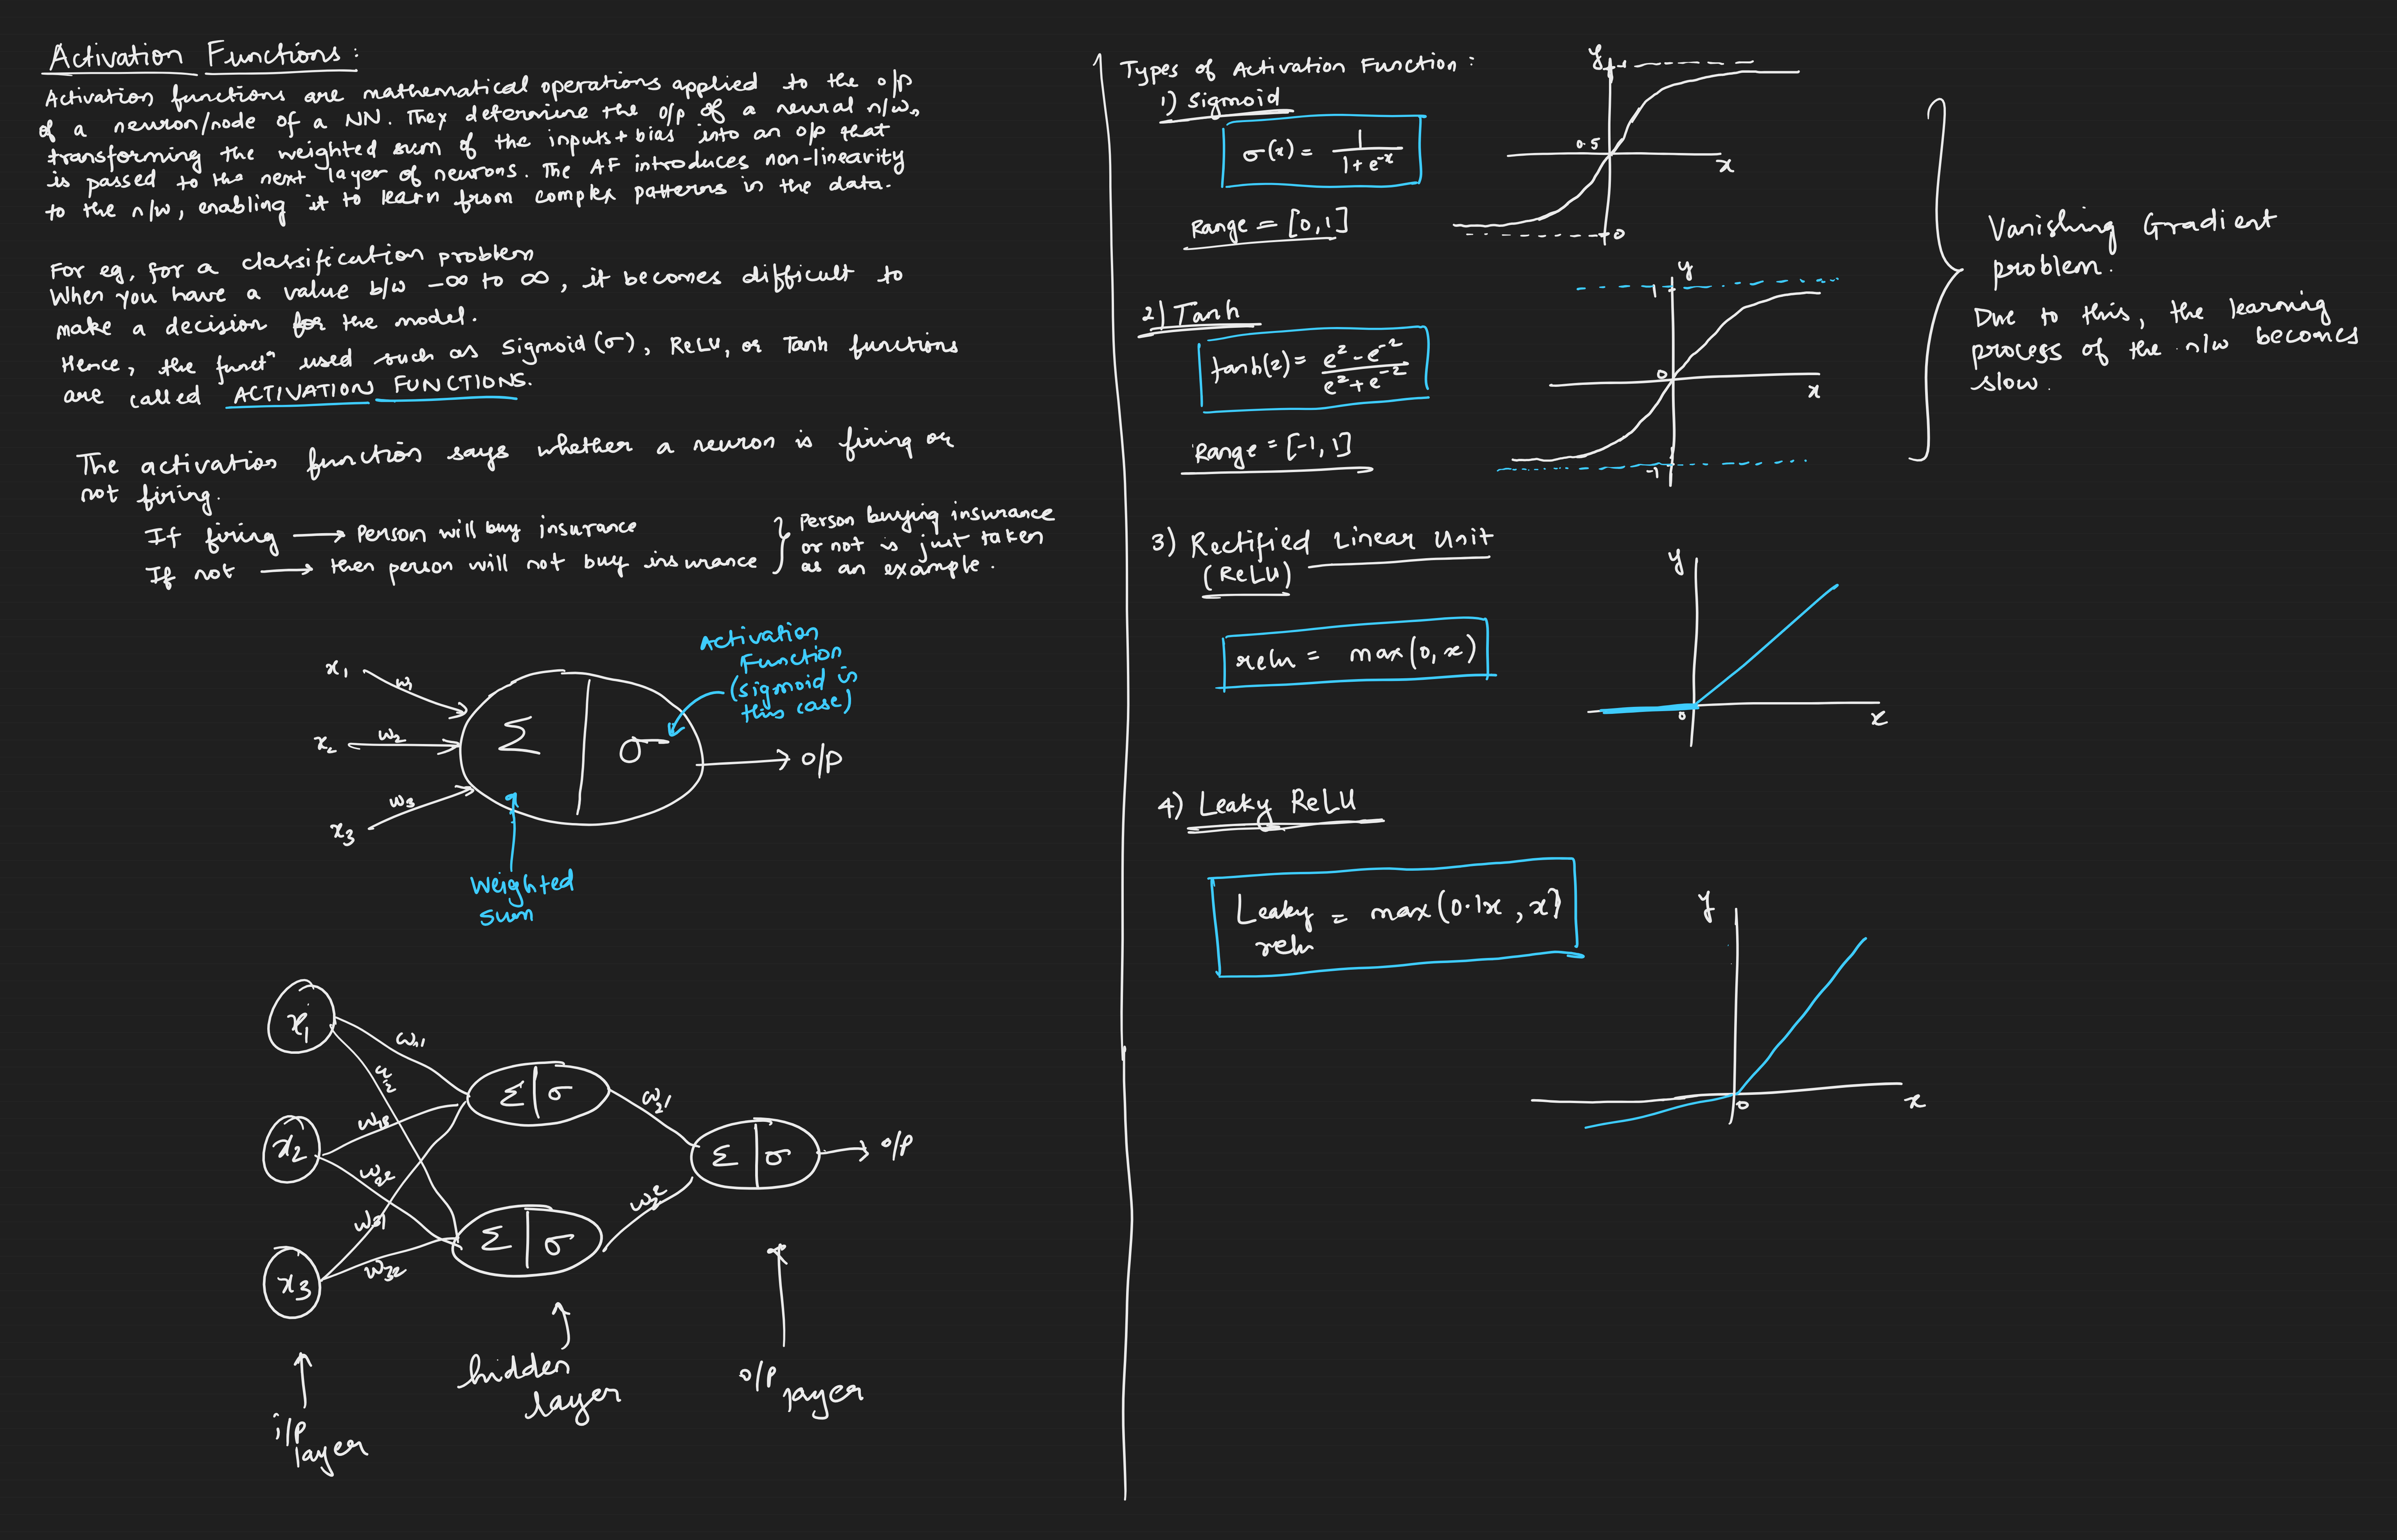 Activation Functions:
Activation functions are mathematical operations applied to the o/p
of a neuron/node of a NN. They determine the o/p of a neural n/w,
transforming the weighted sum of the inputs + bias into an o/p that
is passed to the next layer of neurons. The AF introduces non-linearity
to the n/w, enabling it to learn from complex patterns in the data.
For eg, for a classification problem
When you have a value b/w -∞ to ∞, it becomes difficult to
make a decision for the model.
Hence, the functⁿ used such as Sigmoid (σ), ReLU, or Tanh functions
are called ACTIVATION FUNCTIONS.
The activation function says whether a neuron is firing or
not firing.
If firing → Person will buy insurance
If not → then person will not buy insurance
} Person buying insurance
or not is just taken
as an example.
Activation
Function
(sigmoid in
this case)
x1
w1
x2
w2
x3
w3
Σ
σ
→ o/p
Weighted
sum
x1
x2
x3
w11
w12
w22
w31
w32
Σ | σ
Σ | σ
w21
w22
Σ | σ
→ o/p
i/p
layer
hidden
layer
o/p
layer
Types of Activation Function:
1) Sigmoid
σ(x) = 1 / (1 + e^-x)
Range = [0, 1]
y
1
0.5
x
0
2) Tanh
tanh(z) = (e^z - e^-z) / (e^z + e^-z)
Range = [-1, 1]
y
1
0
x
-1
Vanishing Gradient
problem.
Due to this, the learning
process of the n/w becomes
slow.
3) Rectified Linear Unit
(ReLU)
relu = max(0, x)
y
0
x
4) Leaky ReLU
Leaky = max(0.1x, x)
relu
y
0
x